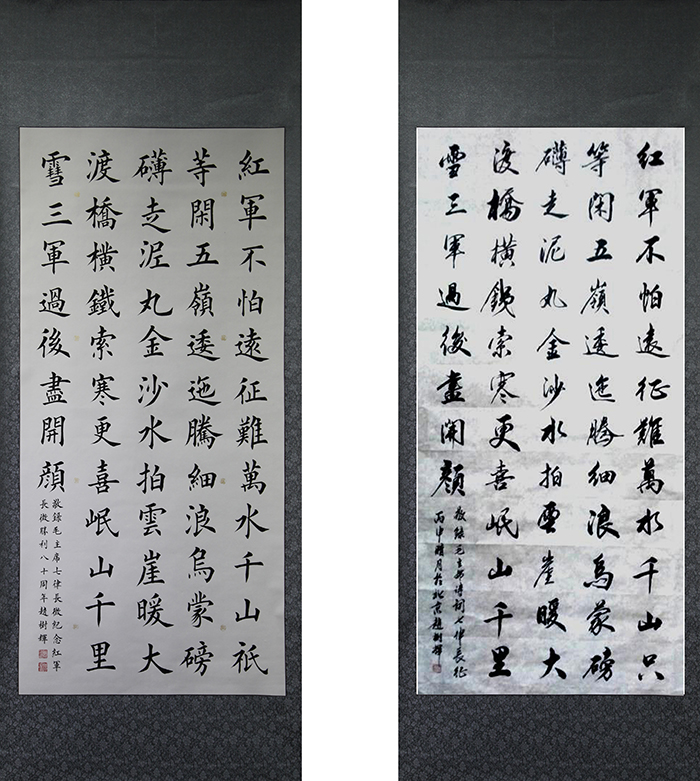 紅軍不怕遠征難萬水千山祇
等閑五嶺逶迤騰細浪烏蒙磅
礴走泥丸金沙水拍雲崖暖大
渡橋橫鐵索寒更喜岷山千里
雪三軍過後盡開顏
敬錄毛主席七律長徵紀念紅軍
長徵勝利八十周年趙樹輝
紅軍不怕遠征難萬水千山只
等閑五嶺逶迤騰細浪烏蒙磅
礴走泥丸金沙水拍雲崖暖大
渡橋橫鐵索寒更喜岷山千里
雪三軍過後盡開顏
敬錄毛主席詩詞七律長征
丙申腊月於北京趙樹輝